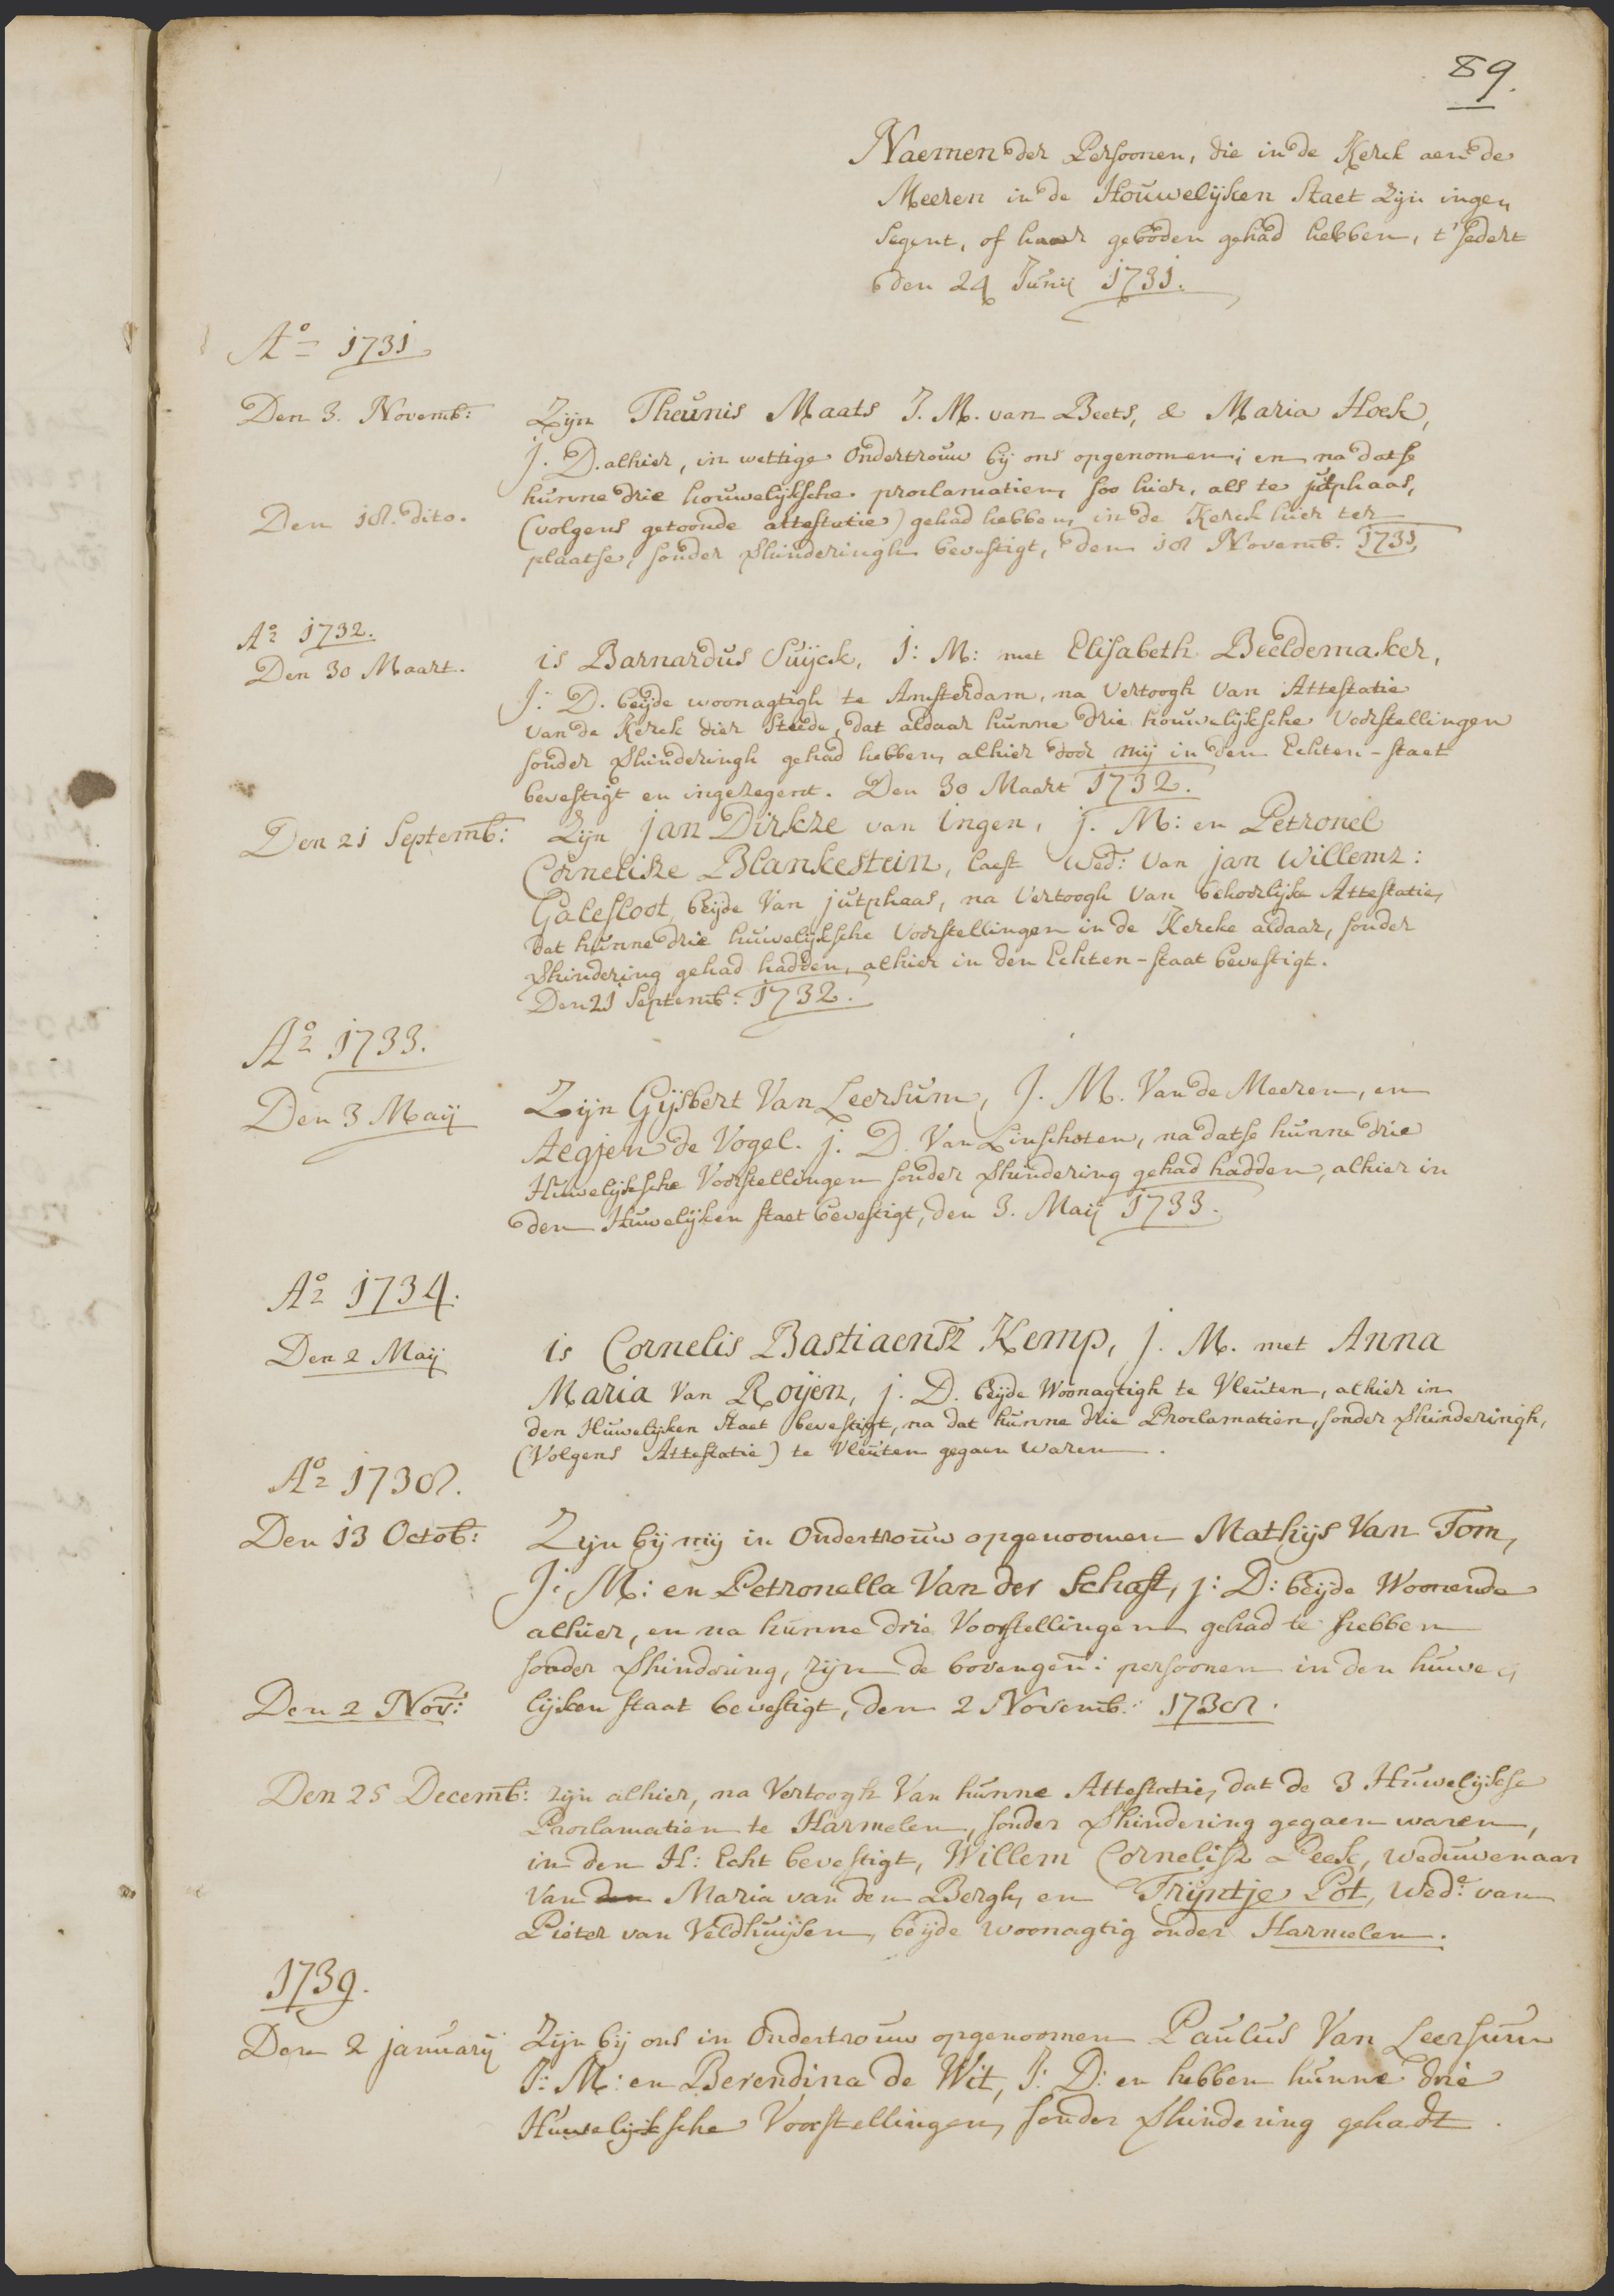 89.
Naemen der Persoonen, die in de Kerck aen de
Meeren in de Houwelijken Staet zijn ingen
segent, of haar geboden gehad hebben, t'sedert
den 24 Junij 1731.
Ao 1731
Den 3. Novemb: Zijn Theunis Maats J. M. van Beets, & Maria Hoek,
J. D. alhier, in wettige Ondertrouw bij ons opgenomen; en na datse
hunne drie houwelijksche proclamatien, soo hier, als te jutphaas,
Den 18. dito. (volgens getoonde attestatie) gehad hebben, in de Kerck hier ter
plaatse, sonder verhinderingh bevestigt, den 18 Novemb. 1731,
Ao 1732.
Den 30 Maart. is Barnardus Suijck, J: M: met Elisabeth Beeldemaker,
J: D. beijde woonagtigh te Amsterdam, na vertoogh van Attestatie
van de Kerck dier Steede, dat aldaar hunne drie houwelijksche voorstellingen
sonder verhinderingh gehad hebben, alhier door mij in den Echten-staet
bevestigt en ingezegent. Den 30 Maart 1732.
Den 21 Septemb: Zijn jan Dirkze van Ingen, j. M: en Petronel
Cornelisze Blankestein, laest Wed: van jan Willemz:
Galesloot, beijde van jutphaas, na vertoogh van behoorlijke Attestatie,
dat hunne drie huwelijksche voorstellingen in de Kercke aldaar, sonder
verhindering gehad hadden, alhier in den Echten-staat bevestigt.
Den 21 Septemb: 1732.
Ao 1733.
Den 3 Maij Zijn Gijsbert Van Leersum, J. M. Van de Meeren, en
Aegjen de Vogel. j. D. Van Linschoten, na datse hunne drie
Huwelijksche Voorstellingen sonder verhindering gehad hadden, alhier in
den Huwelijken staet bevestigt, den 3. Maij 1733.
Ao 1734.
Den 2 Maij is Cornelis Bastiaensz Kemp, j. M. met Anna
Maria Van Roijen, j. D. beijde Woonagtigh te Vleuten, alhier in
den Huwelijken Staet bevestigt, na dat hunne drie Proclamatien, sonder verhinderingh,
(Volgens Attestatie) te Vleuten gegaen waren.
Ao 1738.
Den 13 Octob: Zijn bij mij in Ondertrouw opgenoomen Mathijs Van Tom,
J: M: en Petronella Van der Schaft, j: D: beijde Woonende
alhier, en na hunne drie Voorstellingen gehad te hebben
sonder verhindering, zijn de bovengen: persoonen in den huwe
Den 2 Nov: lijken staat bevestigt, den 2 Novemb: 1738.
Den 25 Decemb: zijn alhier, na Vertoogh Van hunne Attestatie, dat de 3 Huwelijkse
Proclamatien te Harmelen, sonder verhindering gegaen waren,
in den H: Echt bevestigt, Willem Cornelisz Peek, weduwenaar
Van Maria van den Bergh, en Trijntje Pot, Wede: van
Pieter van Veldhuijsen, beijde woonagtig onder Harmelen.
1739.
Den 2 januarij Zijn bij ons in Ondertrouw opgenoomen Paulus Van Leersum
J: M: en Berendina de Wit, J: D: en hebben hunne drie
Huwelijksche Voorstellingen, sonder verhindering gehadt.